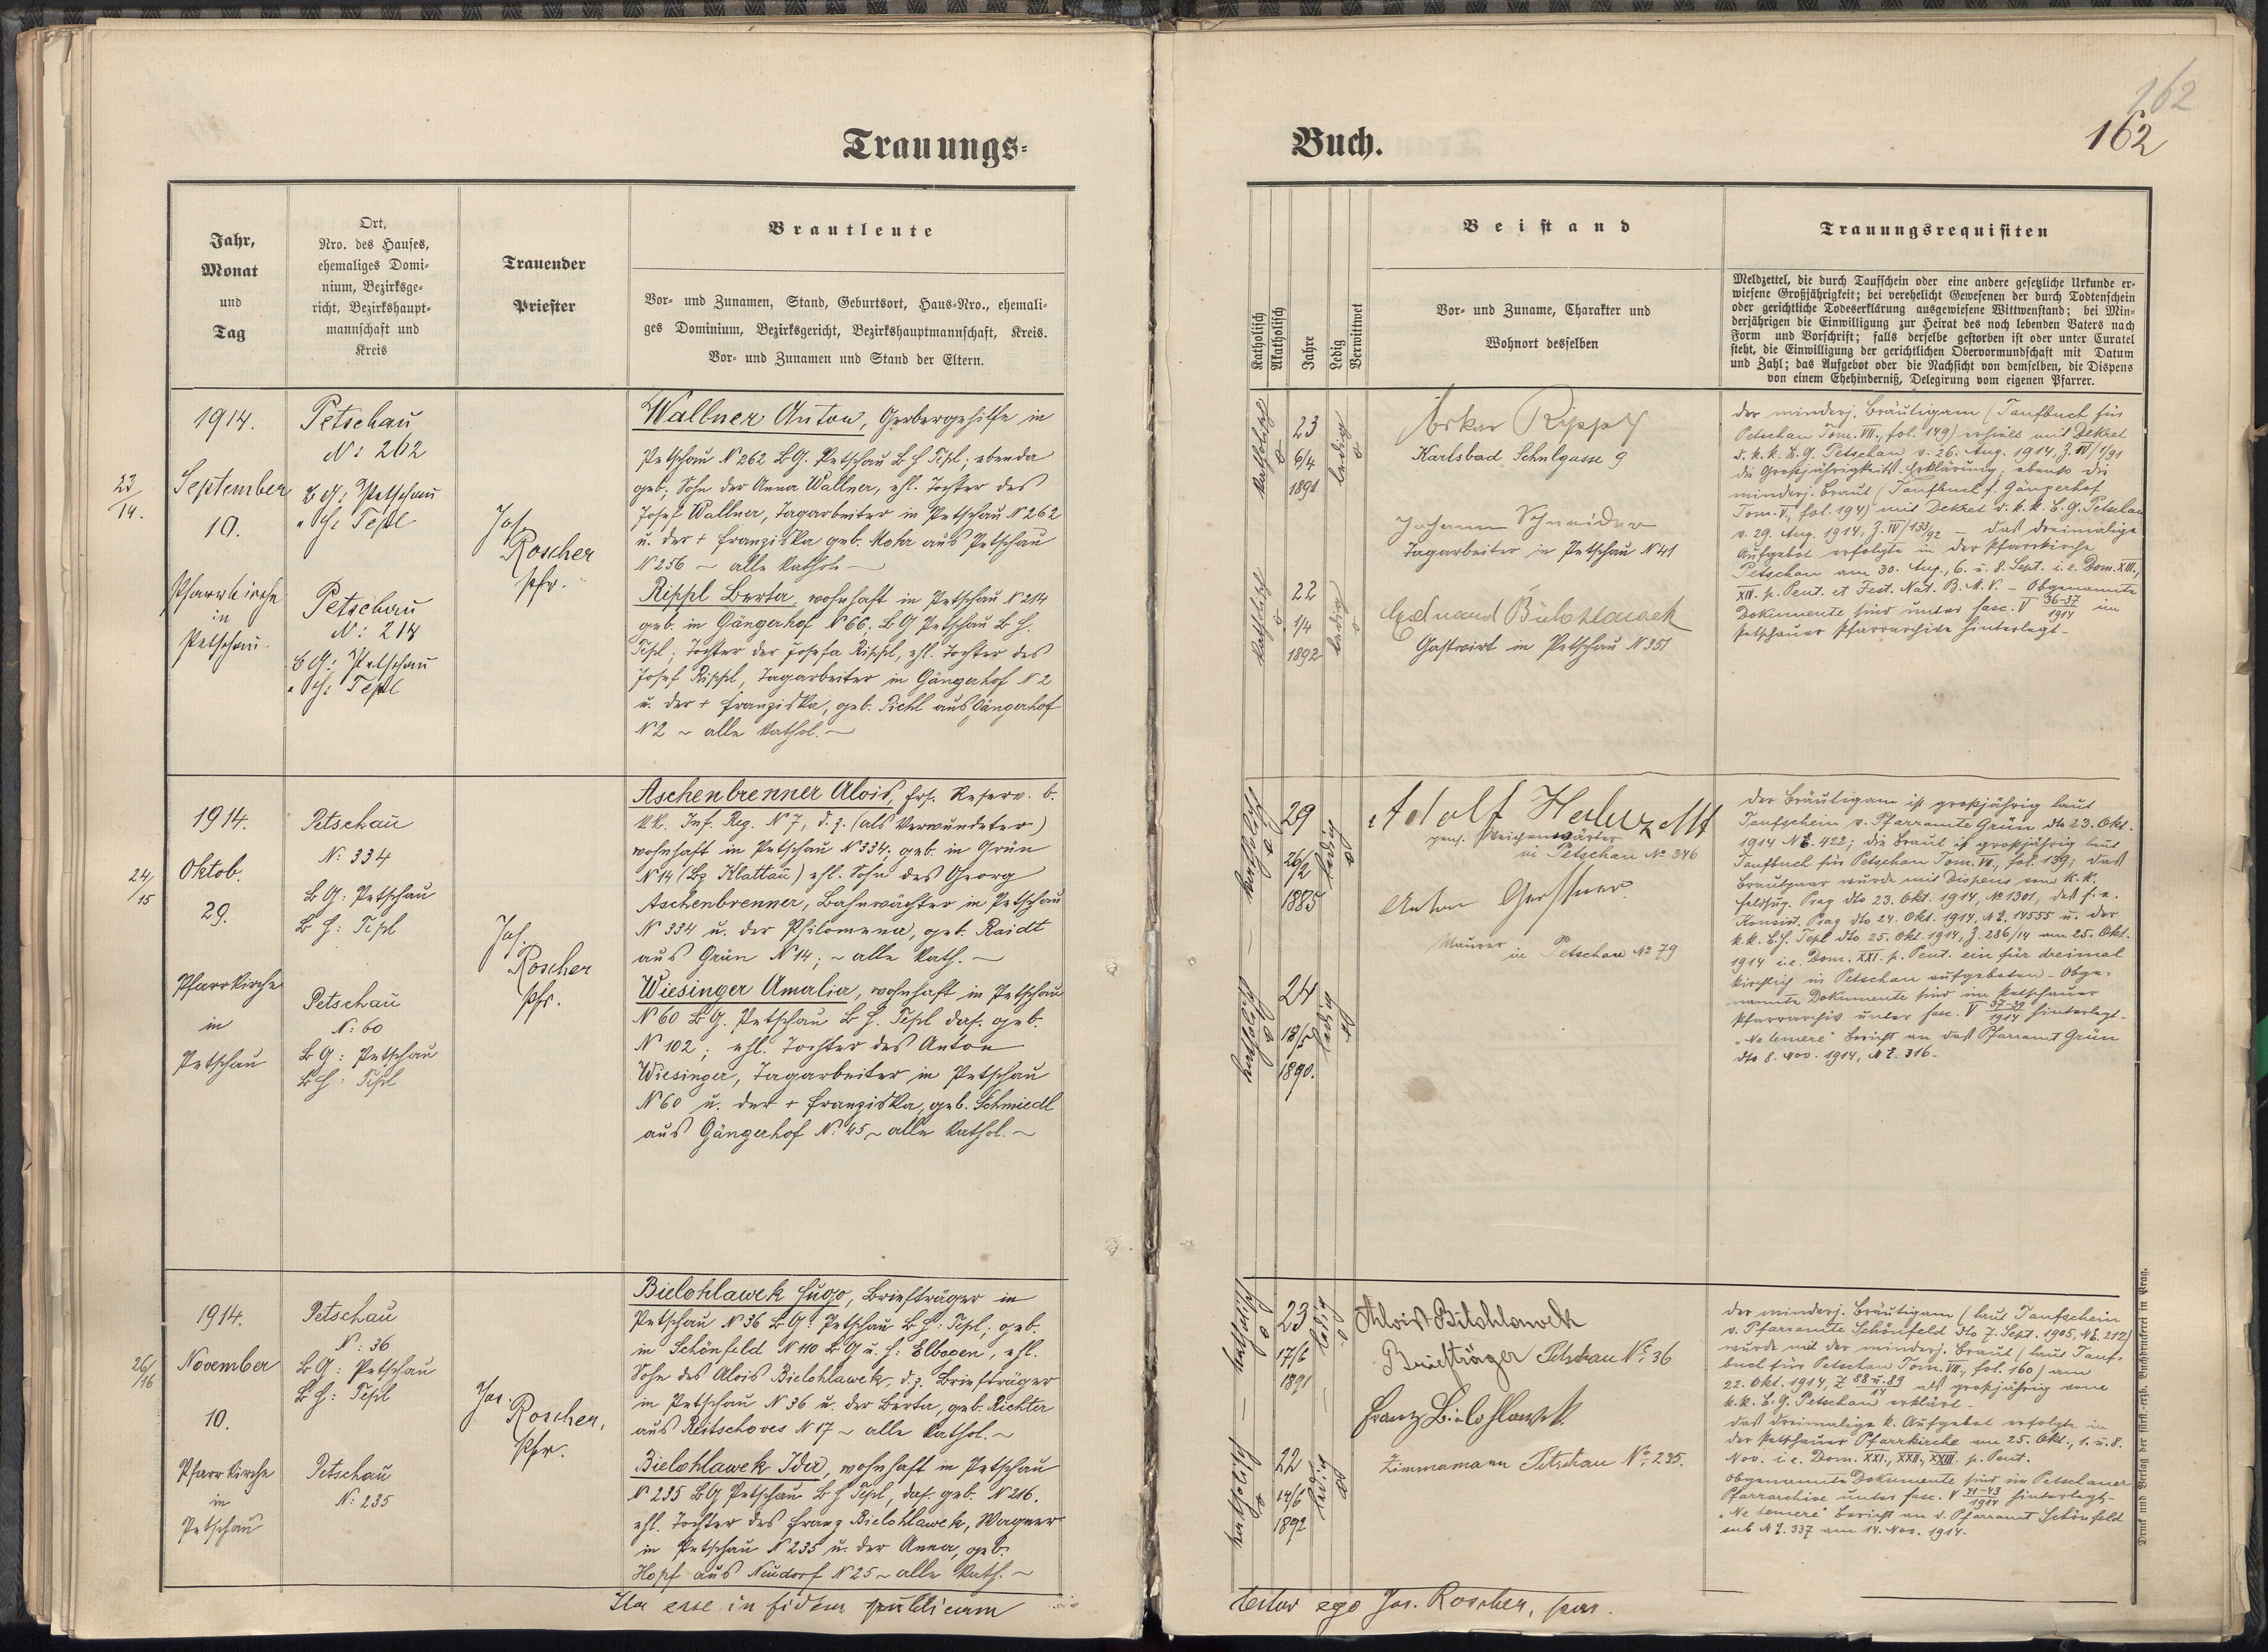 Trauungs-
Jahr,
Monat
und
Tag
Ort,
Nro. des Hauses,
ehemaliges Domi-
nium, Bezirksge-
richt, Bezirkshaupt-
mannschaft und
Kreis
Trauender
Priester
Brautleute
Vor- und Zunamen, Stand, Geburtsort, Haus-Nro., ehemali-
ges Dominium, Bezirksgericht, Bezirkshauptmannschaft, Kreis.
Vor- und Zunamen und Stand der Eltern.
23/14.
1914.
September
10.
Pfarrkirche
in
Petschau.
Petschau
N: 262
B G: Petschau
" H: Tepl
Petschau
N: 214
B G: Petschau
" H: Tepl
Jos.
Roscher
Pfr.
Wallner Anton, Gerbergehilfe in
Petschau N 262 B G. Petschau B H Tepl; ebenda
geb; Sohn der Anna Wallner, ehl. Tochter des
Josef Wallner, Tagarbeiter in Petschau N 262
u. der + Franziska geb. aus Petschau
N 256 ~ alle kathol. ~
Rippl Berta, wohnhaft in Petschau N 214
geb. in Gängerhof N 66. B G Petschau B H.
Tepl; Tochter der Josefa Rippl, ehl. Tochter des
Josef Rippl, Tagarbeiter in Gängerhof N 2
u. der + Franziska, geb. Pichl aus Gängerhof
N 2 ~ alle kathol. ~
24/15
1914.
Oktob.
29.
Pfarrkirche
in
Petschau
Petschau
N: 334
B G: Petschau
B H: Tepl
Petschau
N: 60
B G: Petschau
B H: Tepl
Jos.
Roscher
Pfr.
Aschenbrenner Alois, Ers. Reserv. b.
k.k. Inf. Reg. N 7, d. z. (als Verwundeter)
wohnhaft in Petschau N 334; geb. in Grün
N 14 (Bz Klattau) ehl. Sohn des Georg
Aschenbrenner, Bahnwächter in Petschau
N 334 u. der Philomena, geb. Raidt
aus Grün N 14; ~ alle kath. ~
Wiesinger Amalia, wohnhaft in Petschau
N 60 B G. Petschau B H. Tepl das. geb.
N 102; ehl. Tochter des Anton
Wiesinger, Tagarbeiter in Petschau
N 60 u. der + Franziska, geb. Schmiedl
aus Gängerhof N: 45 ~ alle kathol. ~
26/16
1914.
November
10.
Pfarrkirche
in
Petschau
Petschau
N: 36
B G: Petschau
B H: Tepl
Petschau
N: 235
Jos.
Roscher,
Pfr.
Bielohlawek Hugo, Briefträger in
Petschau N 36 B G: Petschau B H: Tepl; geb.
in Schönfeld N 110 B G u. H: Elbogen, ehl.
Sohn des Alois Bielohlawek, d. z. Briefträger
in Petschau N 36 u. der Berta, geb. Richter
aus N 17 ~ alle kathol. ~
Bielohlawek Ida, wohnhaft in Petschau
N 235 B G Petschau B H Tepl, das. geb. N 216.
ehl. Tochter des Franz Bielohlawek, Wagner
in Petschau N 235 u. der Anna, geb.
Hopf aus Neudorf N 25 ~ alle kath. ~
Ita esse in fidem publicam
Buch.
162
162
Katholisch
Akatholisch
Jahre
Ledig
Verwittwet
Beistand
Vor- und Zuname, Charakter und
Wohnort desselben
Trauungsrequisiten
Meldzettel, die durch Taufschein oder eine andere gesetzliche Urkunde er-
wiesene Großjährigkeit; bei verehelicht Gewesenen der durch Todtenschein
oder gerichtliche Todeserklärung ausgewiesene Wittwenstand; bei Min-
derjährigen die Einwilligung zur Heirat des noch lebenden Vaters nach
Form und Vorschrift; falls derselbe gestorben ist oder unter Curatel
steht, die Einwilligung der gerichtlichen Obervormundschaft mit Datum
und Zahl; das Aufgebot oder die Nachsicht von demselben, die Dispens
von einem Ehehinderniß, Delegirung vom eigenen Pfarrer.
katholisch
23
6/4
1891
ledig
katholisch
22
1/4
1892
ledig
Oskar Rippl
Karlsbad Schulgasse 9
Johann Schneider
Tagarbeiter in Petschau N 41
Eduard Bielohlawek
Gastwirt in Petschau N 351
der minderj. Bräutigam (Taufbuch für
Petschau Tom. VII., fol. 149) erhielt mit Dekret
d. k. k. B. G. Petschau v. 26. Aug. 1914, Z.
die Großjährigkeits-Erklärung; ebenso die
minderj. Braut (Taufbuch f. Gängerhof
Tom. V, fol. 194) mit Dekret d. k. k. B. G. Petschau
v. 29. Aug. 1914, Z. IV 133/92 – das dreimalige
Aufgebot erfolgte in der Pfarrkirche
Petschau am 30. Aug., 6. u. 8. Sept. i. e. Dom. XIII.,
XIV. p. Pent. et Fest. Nat. B. M. V. – Obgenannte
Dokumente sind unter fasc. V 36-37/1914 im
Petschauer Pfarrarchive hinterlegt –
katholisch
29
26/2
1885
ledig
katholisch
24
1890.
ledig
Adolf
pens. Weichenwärter
in Petschau No 346
Anton Gerstner
Maurer
in Petschau No 79
der Bräutigam ist großjährig laut
Taufschein v. Pfarramte Grün dto 23. Okt.
1914 N E. 422; die Braut ist großjährig laut
Taufbuch für Petschau Tom. VII, fol. 139; das
Brautpaar wurde mit Dispens vom k. k.
Prag dto 23. Okt. 1914, No 1301, des f. e.
Konsist. Prag dto 24. Okt. 1914, N E. 14555 u. der
k. k. B. H. Tepl dto 25. Okt. 1914, Z. 286/14 am 25. Okt.
1914 i. e. Dom. XXI. p. Pent. ein für dreimal
kirchlich in Petschau aufgeboten – Obge-
nannte Dokumente sind im Petschauer
Pfarrarchiv unter fasc. V 37-39/1914 hinterlegt –
„Ne temere" Bericht an das Pfarramt Grün
dto 8. Nov. 1914, N E. 316 –
katholisch
23
17/6
1891
ledig
katholisch
22
14/6
1892
ledig
Alois Bielohlawek
Briefträger Petschau No 36
Franz Bielohlawek
Zimmamann Petschau No 235.
der minderj. Bräutigam (laut Taufschein
v. Pfarramte Schönfeld dto 7. Sept. 1905, N E. 212)
wurde mit der minderj. Braut (laut Tauf-
buch für Petschau Tom. VII, fol. 160) am
22. Okt. 1914, Z 88 u. 89/14 als großjährig vom
k. k. B. G. Petschau erklärt –
das dreimalige k. Aufgebot erfolgte in
der Petschauer Pfarrkirche am 25. Okt., 1. u. 8.
Nov. i. e. Dom. XXI., XXII., XXIII. p. Pent.
Obgenannte Dokumente sind im Petschauer
Pfarrarchive unter fasc. V 41-43/1914 hinterlegt –
„Ne temere" Bericht an d. Pfarramt Schönfeld
sub N E. 337 am 14. Nov. 1914 –
testor ego Jos. Roscher, par.
Druck und Verlag der fürst.-erzb. Buchdruckerei in Prag.